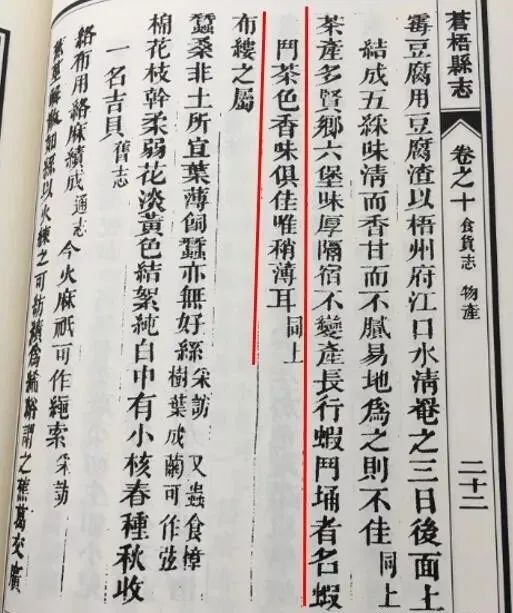 蒼梧縣志 卷之十 食貨志 物產 二十二
霉豆腐用豆腐渣以梧州府江口水清罨之三日後面上
結成五綵味清而香甘而不膩易地為之則不佳 同上
茶產多賢鄉六堡味厚隔宿不變產長行蝦鬥埇者名蝦
鬥茶色香味俱佳唯稍薄耳 同上
布縷之屬
蠶桑非土所宜葉薄飼蠶亦無好絲 采訪 又蟲食樟樹葉成繭可作弦
棉花枝幹柔弱花淡黃色結絮純白中有小核春種秋收
一名吉貝 舊志
絡布用絡麻績成 通志 今火麻祇可作繩索 采訪
解散如絲以火練之可紡績為絺綌謂之蕉葛交廣